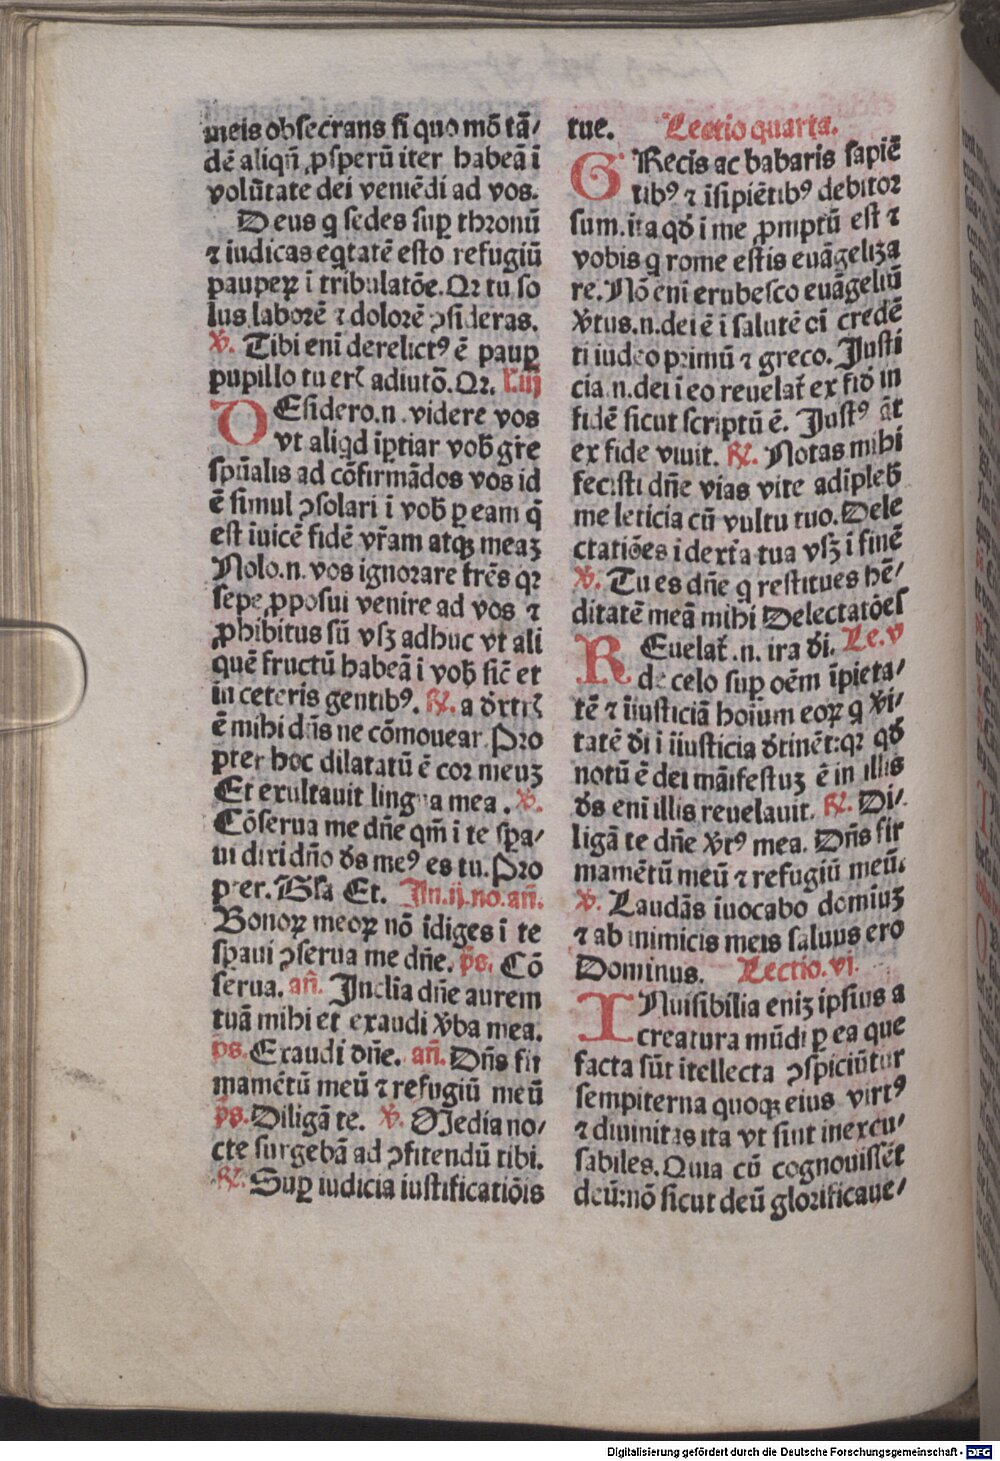 meis obsecrans si quo mō tā/
dē aliqñ ꝓsperū iter habeā ī
volūtate dei veniēdi ad vos.
Deus q̇ sedes suꝑ thronū
⁊ iudicas eq̇tatē esto refugiū
pauperꝝ ī tribulatōe. Qꝛ tu so
lus laborē ⁊ dolorē ↄsideras.
℣. Tibi eni derelictꝰ ē paupꝑ
pupillo tu erꝭ adiutō. Qꝛ. L'iij
DEsidero .n. videre vos
vt aliq̇d īptiar vob̄ grē
spūalis ad cōfirmādos vos id
ē simul ↄsolari ī vob̄ ꝑ eam q̄
est īuicē fidē vr̄am atqꝫ meaꝫ
Nolo .n. vos ignorare fr̄es qꝛ
sepe ꝓposui venire ad vos ⁊
ꝓhibitus sū vsꝫ adhuc vt ali
quē fructū habeā ī vob̄ sic̄ et
in ceteris gentibꝰ. ℟. a dxtrꝭ
ē mihi dn̄s ne cōmouear. Pro
pter hoc dilatatū ē cor meuꝫ
Et exultauit lingua mea. ℣.
Cōserua me dn̄e qm̄ ī te spa/
ui dixi dn̄o ds̄ meꝰ es tu. Pro
pter. Gl̄a Et. In .ij. no. añ.
Bonoꝝ meoꝝ nō īdiges ī te
spaui ↄserua me dn̄e. ps̄. Cō
serua. añ. Inclīa dn̄e aurem
tuā mihi et exaudi v̄ba mea.
ps̄. Exaudi dn̄e. añ. Dn̄s fir
mamētū meū ⁊ refugiū meū
ps̄. Diligā te. ℣. Media no/
cte surgebā ad ↄfitendū tibi.
℟. Suꝑ iudicia iustificatiōis
tue. Lectio quarta.
GRecis ac babaris sapiē
tibꝰ ⁊ īsipiētibꝰ debitor
sum. ita qd̄ ī me ꝓmptū est ⁊
vobis q̇ rome estis euāgeliza
re. Nō eni erubesco euāgeliū
v̄tus .n. dei ē ī salutē oī credē
ti iudeo primū ⁊ greco. Justi
cia .n. dei ī eo reuelat̄ ex fid̄ in
fidē sicut scriptū ē. Justꝰ āt
ex fide viuit. ℟. Notas mihi
fecisti dn̄e vias vite adīpleb̄
me leticia cū vultu tuo. Dele
ctatiōes ī dext̄a tua vsꝫ ī finē
℣. Tu es dn̄e q̇ restitues hē/
ditatē meā mihi Delectatōes
REuelat̄ .n. ira d̄i. Le. v
de celo suꝑ oēm īpieta/
tē ⁊ īiusticiā hoīum eoꝝ q̇ v̄i/
tatē d̄i ī īiusticia d̄tinēt: qꝛ qd̄
notū ē dei māifestuꝫ ē in illis
ds̄ eni illis reuelauit. ℟. Di/
ligā te dn̄e v̄tꝰ mea. Dn̄s fir
mamētū meū ⁊ refugiū meū.
℣. Laudās īuocabo domiuꝫ
⁊ ab inimicis meis saluus ero
Dominus. Lectio. vi.
INuisibilia eniꝫ ipsius a
creatura mūdi ꝑ ea que
facta sūt ītellecta ↄspiciūtur
sempiterna quoqꝫ eius virtꝰ
⁊ diuinitas ita vt sint inexcu/
sabiles. Quia cū cognouissēt
deū: nō sicut deū glorificaue/
Digitalisierung gefördert durch die Deutsche Forschungsgemeinschaft - DFG